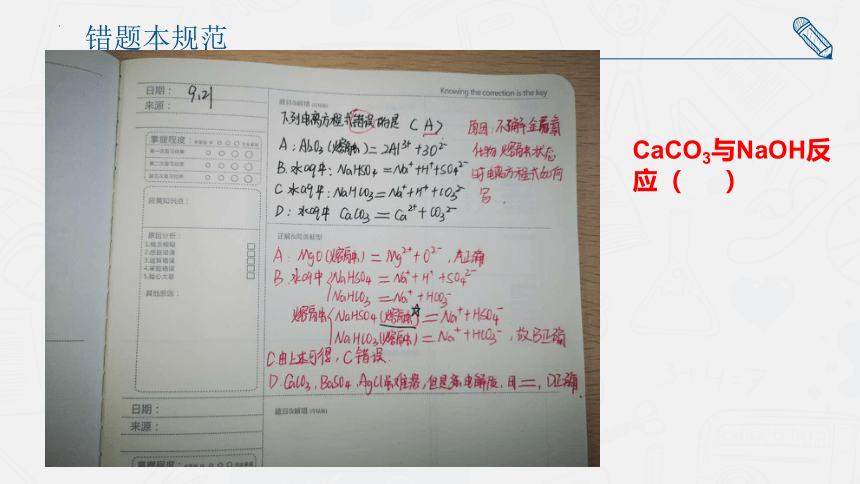 错题本规范
Knowing the correction is the key
日期： 9.21
来源：
掌握程度：
题目&解错
下列电离方程式错误的是 (A)
A：Al2O3(熔融) = 2Al³⁺+3O²⁻
B. 水中：NaHSO4 = Na⁺+H⁺+SO4²⁻
C 水中：NaHCO3 = Na⁺+H⁺+CO3²⁻
D：水中 CaCO3 = Ca²⁺+CO3²⁻
原因：不确解金属氧
化物 熔融状态
时电离方程式如何
写.
第一次复习效果
第二次复习效果
第三次复习效果
所属知识点：
原因分析：
1.概念模糊
2.思路错误
3.运算错误
4.审题错误
5.粗心大意
其他原因：
正解&同类题型
A：MgO(熔融) = Mg²⁺+O²⁻，A正确
B.水中 NaHSO4 = Na⁺+H⁺+SO4²⁻
NaHCO3 = Na⁺+HCO3⁻
熔融 NaHSO4(熔融) = Na⁺+HSO4⁻
NaHCO3(熔融) = Na⁺+HCO3⁻，故B正确
C.由上述可得，C错误.
D.CaCO3、BaSO4、AgCl虽难溶，但是强电解质，用=，D正确.
日期：
来源：
题目&解错
掌握程度：
CaCO₃与NaOH反
应（ ）